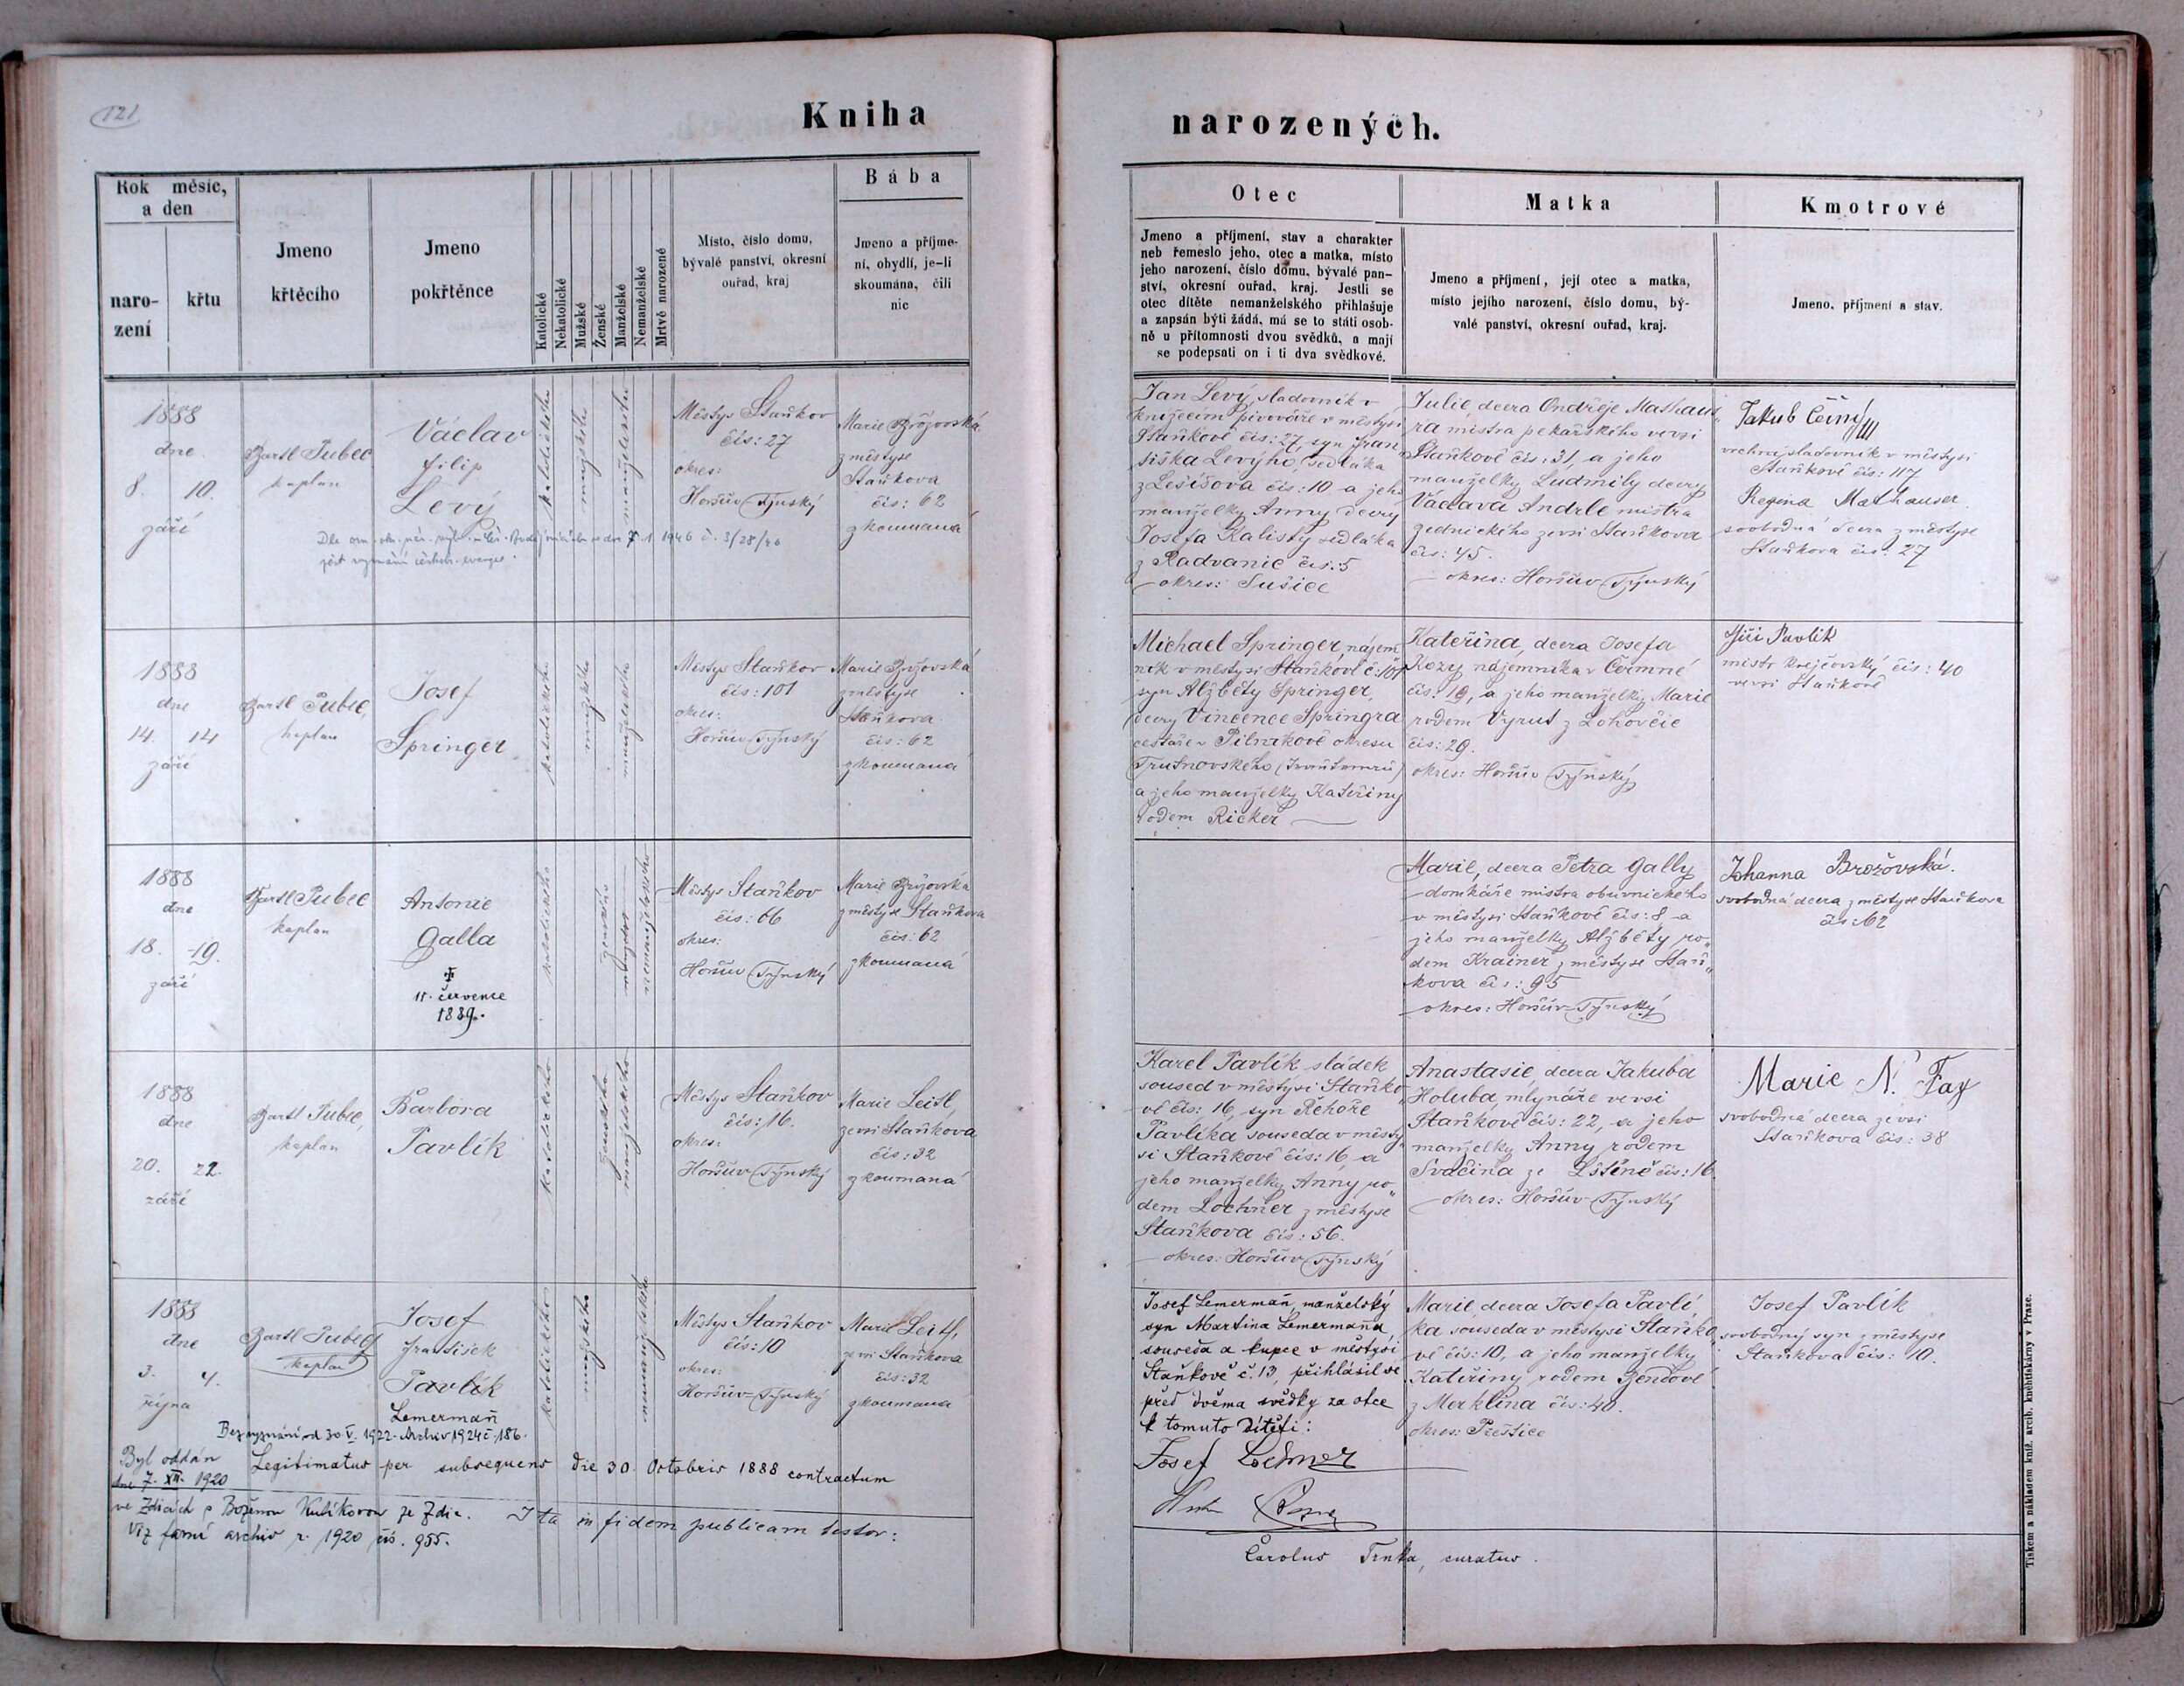 121
Kniha
narozených.
Rok měsíc,
a den
naro-
zení
křtu
Jmeno
křtěcího
Jmeno
pokřtěnce
Katolické
Nekatolické
Mužské
Ženské
Manželské
Nemanželské
Mrtvě narozené
Místo, číslo domu,
bývalé panství, okresní
ouřad, kraj
Bába
Jmeno a příjme-
ní, obydlí, je-li
skoumána, čili
nic
Otec
Jmeno a příjmení, stav a charakter
neb řemeslo jeho, otec a matka, místo
jeho narození, číslo domu, bývalé pan-
ství, okresní ouřad, kraj. Jestli se
otec dítěte nemanželského přihlašuje
a zapsán býti žádá, má se to státi osob-
ně u přítomnosti dvou svědků, a mají
se podepsati on i ti dva svědkové.
Matka
Jmeno a příjmení, její otec a matka,
místo jejího narození, číslo domu, bý-
valé panství, okresní ouřad, kraj.
Kmotrové
Jmeno, příjmení a stav.
1888
dne
8. 10.
září
Bartl Pubec
kaplan
Václav
Filip
Levý
katolického
mužského
manželského
Městys Staňkov
čís: 27
okres:
Horšův-Týnský
Marie Brožovská
z městyse
Staňkova
čís: 62
zkoumaná
Jan Levý, sladovník v
knížecím pivováře v městysi
Staňkově čís: 27, syn Fran„
tiška Levýho, sedláka
z Lešišova čís: 10 a jeho
manželky Anny dcery
Josefa Kalisty sedláka
z Radvanic čís: 5
okres: Sušice
Julie, dcera Ondřeje Mathaus„
ra mistra pekařského ve vsi
Staňkově čís: 31, a jeho
manželky Ludmily dcery
Václava Andrle mistra
zednického ze vsi Staňkova
čís: 45.
okres: Horšův-Týnský
Jakub Černý
vrchní sladovník v městysi
Staňkově čís: 117
Regina Mathauser
svobodná dcera z městyse
Staňkova čís: 27
1946 č. 3/28/46
1888
dne
14. 14
září
Bartl Pubec,
kaplan
Josef
Springer
katolického
mužského
manželského
Městys Staňkov
čís: 101
okres:
Horšův-Týnský
Marie Brožovská
z městyse
Staňkova
čís: 62
zkoumaná
Michael Springer, nájem„
ník v městysi Staňkově č: 101
syn Alžběty Springer,
dcery Vincence Springra
cestáře v Pilnikově okresu
Trutnovského (Trautenau)
a jeho manželky Kateřiny
rodem Ricker
Kateřina, dcera Josefa
Kozy nájemníka v Čermné
čís: 19, a jeho manželky Marie
rodem Vyrut z Lohovčic
čís: 29.
okres: Horšův Týnský
Jiří Pavlík
mistr krejčovský čís: 40
ve vsi Staňkově
1888
dne
18. 19.
září
Bartl Pubec
kaplan
Antonie
Galla
✝
11. července
1889.
katolického
ženského
nemanželského
Městys Staňkov
čís: 66
okres:
Horšův Týnský
Marie Brožovská
z městyse Staňkova
čís: 62
zkoumaná
Marie, dcera Petra Gally
domkáře mistra obuvnického
v městysi Staňkově čís: 8 a
jeho manželky Alžběty ro„
dem Krainer z městyse Staň„
kova čís: 95
okres: Horšův-Týnský
Johanna Brožovská.
svobodná dcera z městyse Staňkova
čís: 62
1888
dne
20. 22.
září
Bartl Pubec,
kaplan
Barbora
Pavlík
katolického
ženského
manželského
Městys Staňkov
čís: 16.
okres:
Horšův-Týnský
Marie Leitl,
ze vsi Staňkova
čís: 32
zkoumaná
Karel Pavlík sládek
soused v městysi Staňko„
vě čís: 16, syn Řehoře
Pavlíka souseda v městy„
si Staňkově čís: 16, a
jeho manželky Anny ro„
dem Lochner z městyse
Staňkova čís: 56.
okres: Horšův Týnský
Anastasie dcera Jakuba
Holuba, mlynáře ve vsi
Staňkově čís: 22, a jeho
manželky Anny rodem
Svačina ze Lštění čís: 16.
okres: Horšův-Týnský
Marie N. Fax
svobodná dcera ze vsi
Staňkova čís: 38
1888
dne
3. 4.
října
Bartl Pubec
kaplan
Josef
František
Pavlík
Lemermañ
katolického
mužského
nemanželského
Městys Staňkov
čís: 10
okres:
Horšův-Týnský
Marie Leitl,
ze vsi Staňkova
čís: 32
zkoumaná
Josef Lemermañ, manželský
syn Martina Lemermaña,
souseda a kupce v městysi
Staňkově č. 13, přihlásil se
před dvěma svědky za otce
k tomuto dítěti:
Josef Lochner
Marie, dcera Josefa Pavlí„
ka souseda v městysi Staňko„
vě čís: 10, a jeho manželky
Kateřiny rodem Bendově
z Merklína čís: 40.
okres: Přeštice
Josef Pavlík
svobodný syn z městyse
Staňkova čís: 10.
Bez vyznání od 30. V. 1922. Archiv 1924 č. 186.
Byl oddán
dne 7. XII. 1920
ve Zdicích s Boženou Kulíkovou ze Zdic.
Viz farní archiv r. 1920 čís. 955.
Legitimatus per subsequens die 30. Octobris 1888 contractum
Ita in fidem publicam testor:
Carolus Trnka, curatus.
Tiskem a nákladem kníž. arcib. knihtiskárny v Praze.